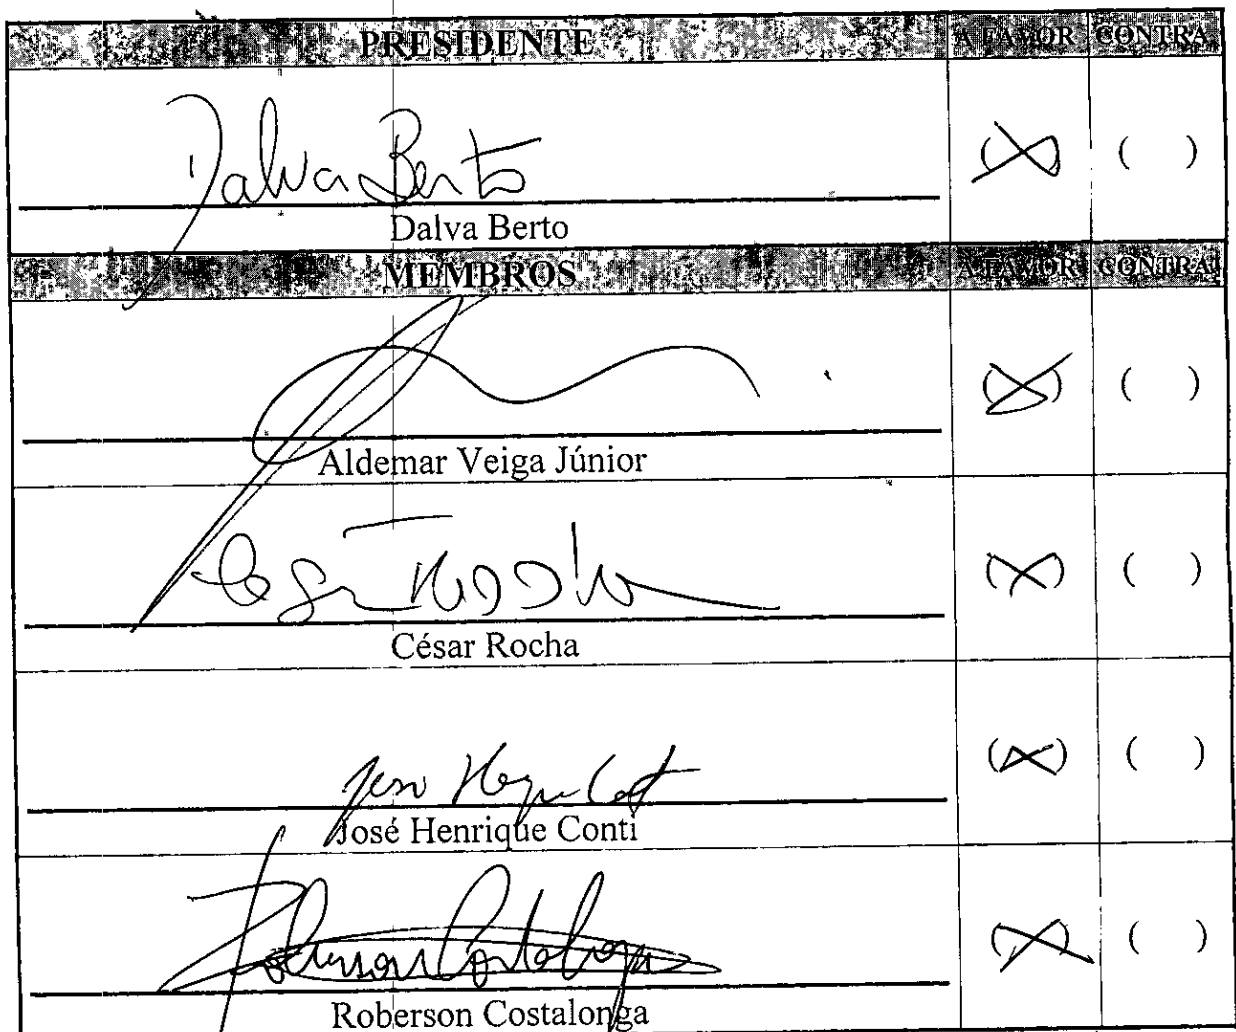 PRESIDENTE A FAVOR CONTRA
Dalva Berto (X) ( )
Dalva Berto
MEMBROS A FAVOR CONTRA
(X) ( )
Aldemar Veiga Júnior
(X) ( )
César Rocha
(X) ( )
José Henrique Conti
Roberson Costalonga (X) ( )
Roberson Costalonga